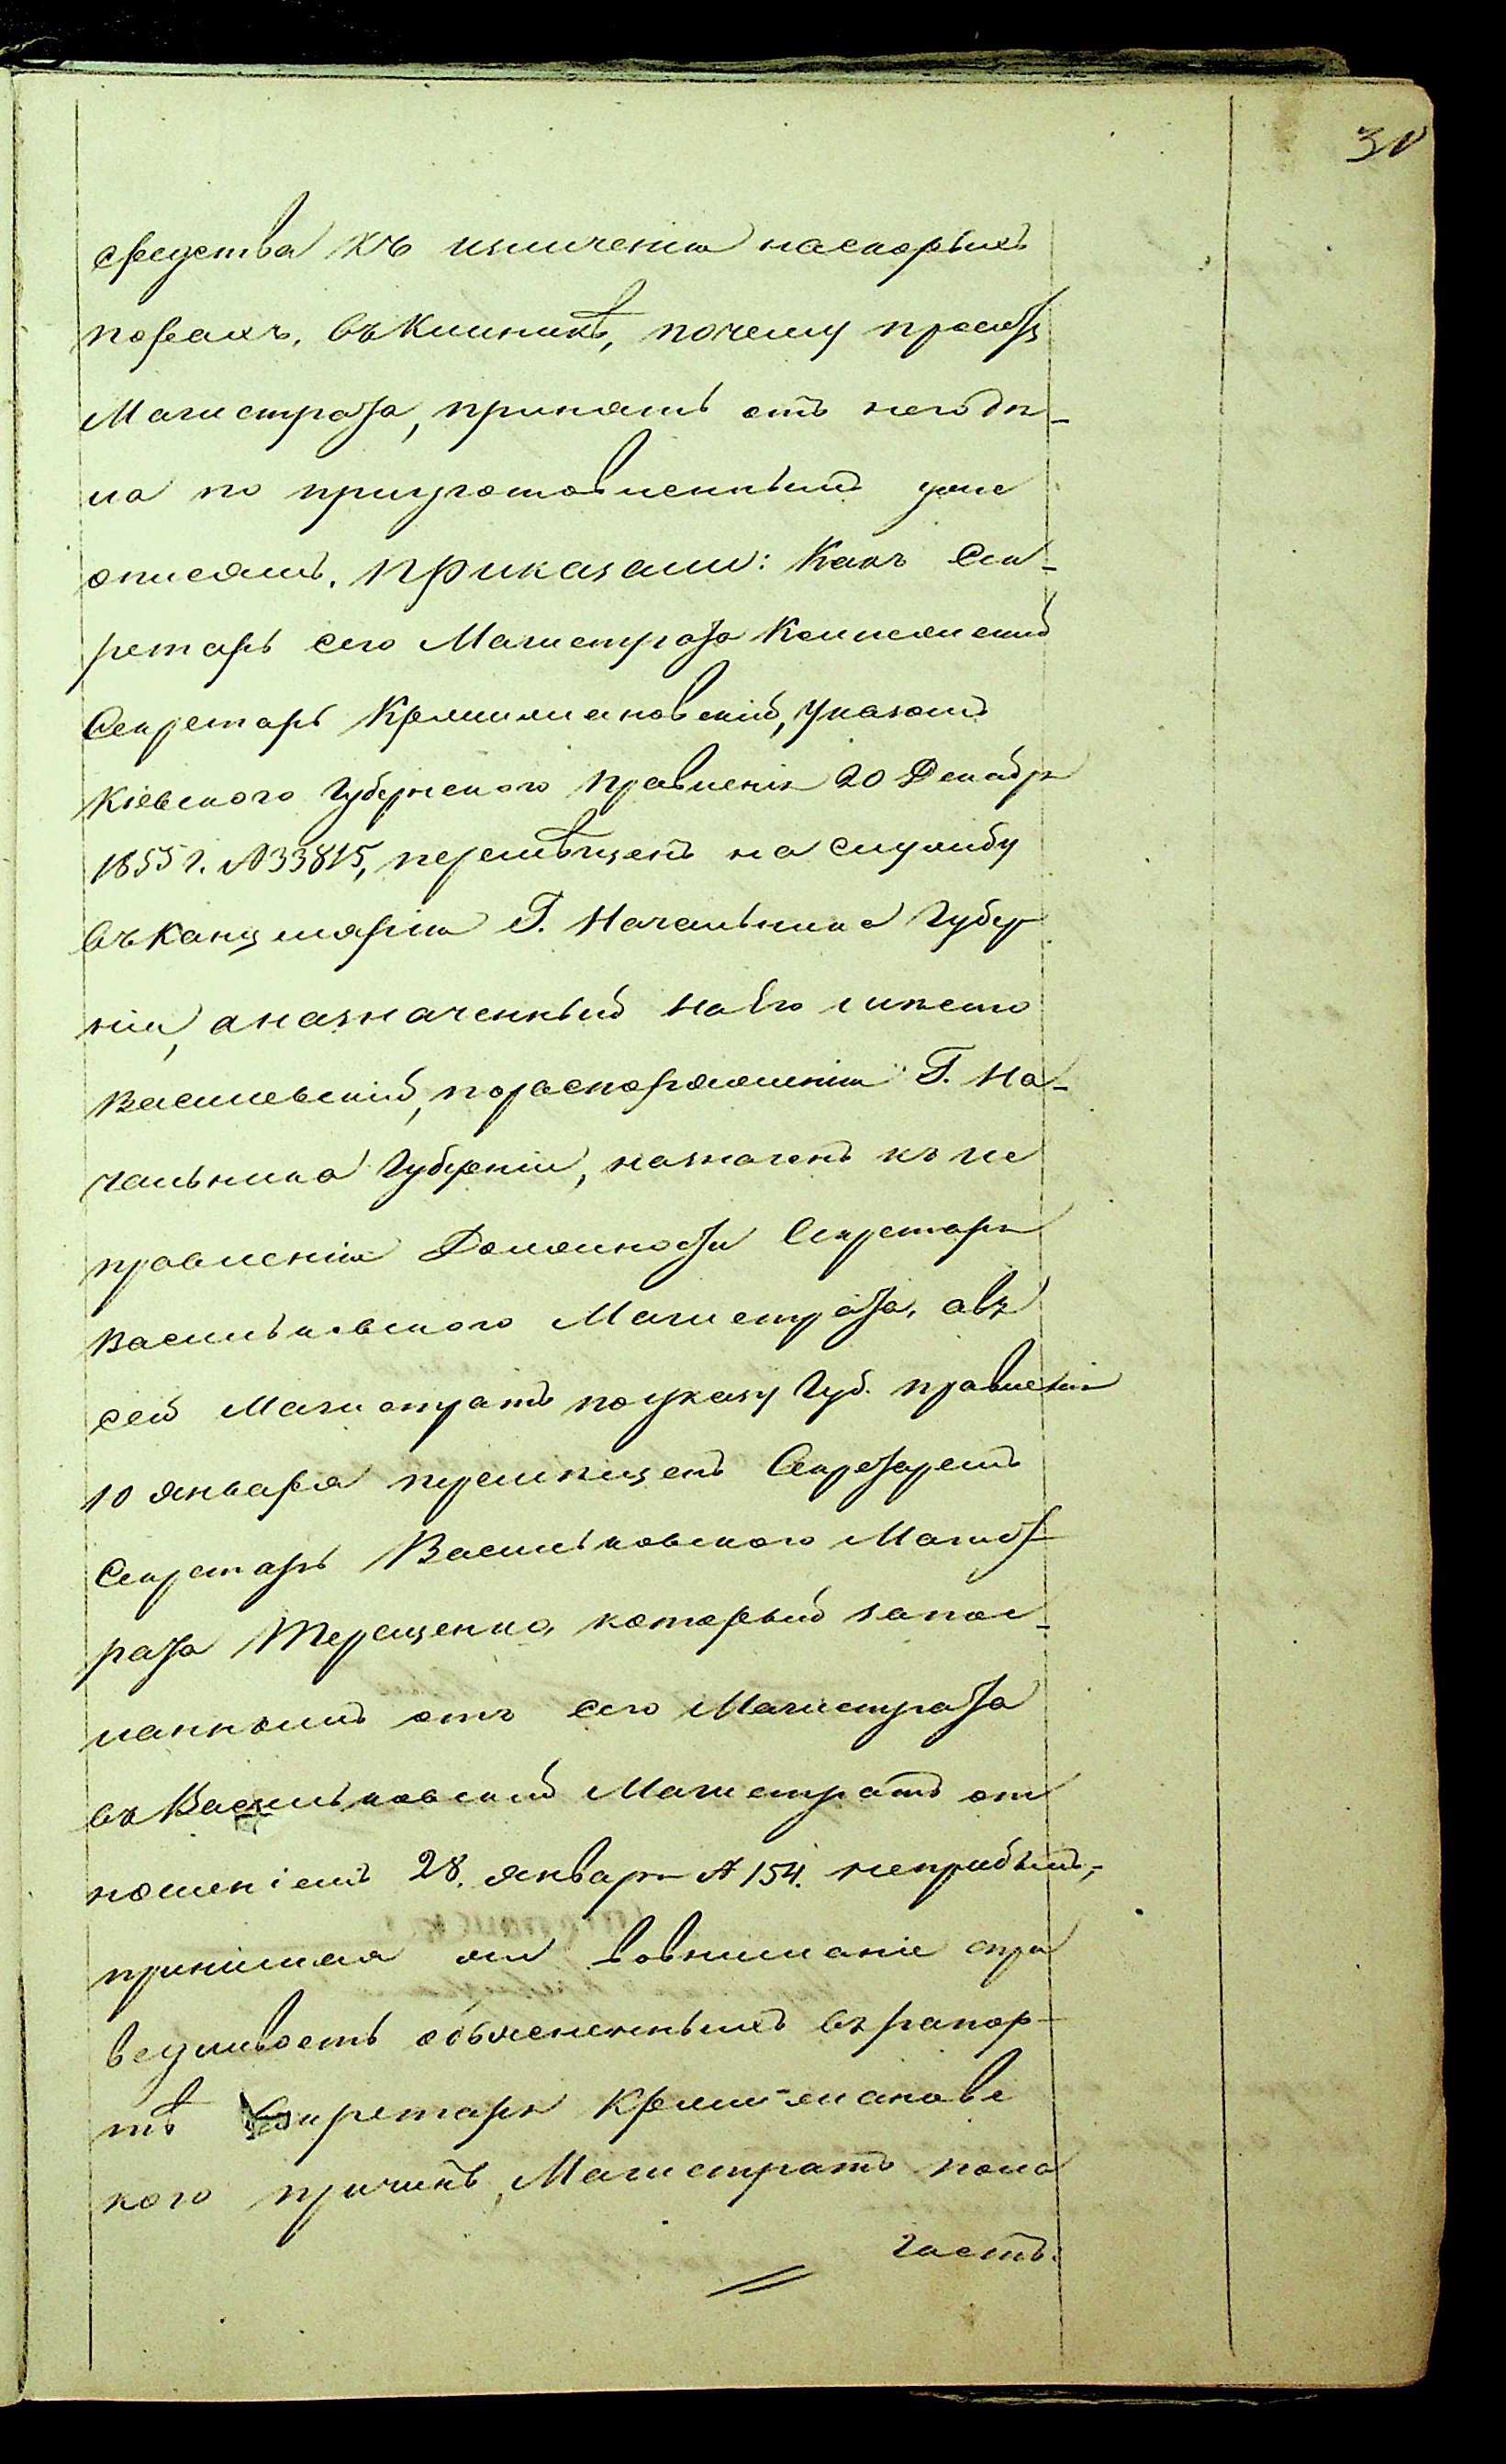 30
средства къ излеченію наскорыхъ
порахъ, въ Клиникѣ, почему проситъ
Магистрата, принять отъ него дѣ-
ла по приуготовленнымъ уже
описямъ. Приказали: Какъ Сек-
ретарь сего Магистрата Колежскій
Секретарь Кремшмановскій, Указомъ
Кіевского Губернского Правленія 20 Декабря
1855 г. №33815, перемѣщенъ на службу
въ Канцелярію Г. Начальника Губер
ніи, а назначенный на его мѣсто
Василевскій, по распоряженію Г. На-
чальника Губерніи, назначенъ къ ис
правленію Должности Секретаря
Васильковского Магистрата, а въ
сей Магистратъ по указу Губ. правленія
10 Января перемѣщенъ Секретаремъ
Секретарь Васильковского Магист
рата Терещенко, который за пос
ланнымъ отъ сего Магистрата
въ Васильковскій Магистратъ от
ношеніемъ 28. Января №154. неприбылъ,-
принимая во вниманіе спра
ведливость объясненныхъ въ рапор-
тѣ Секретаря Кремшмановс
кого причинъ, Магистратъ пола
гаетъ: